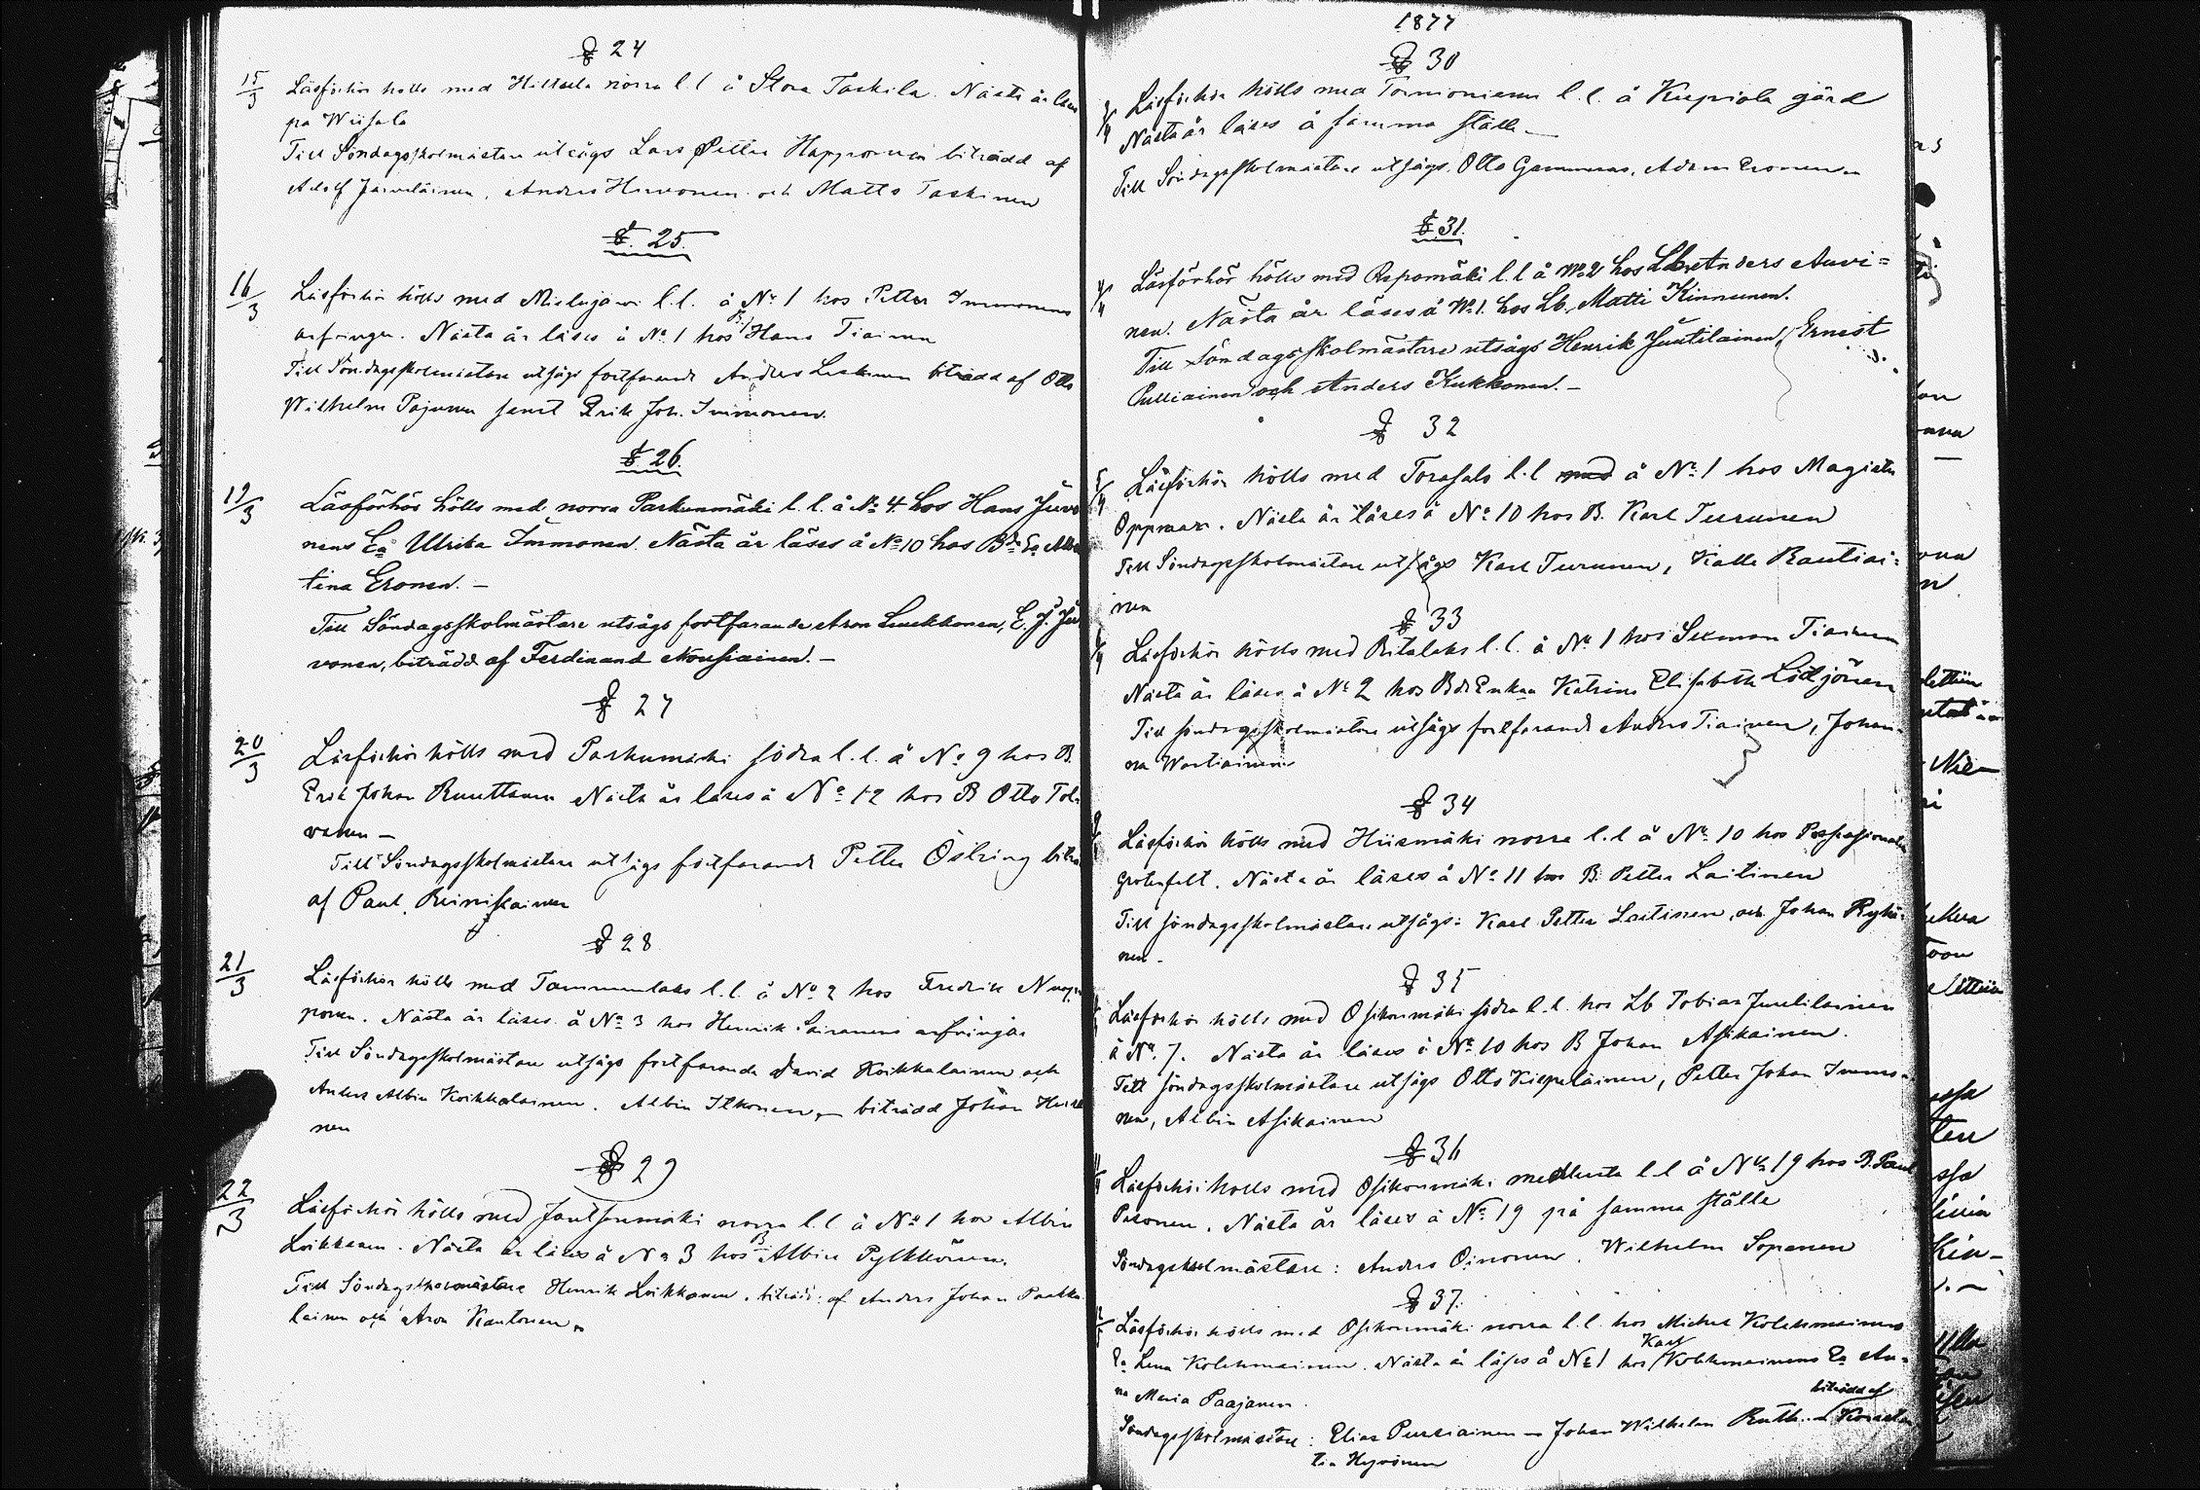 § 24
15/3 Läsförhör hölls med Hiltula norra l.l å Stora Taskila. Nästa år läses
på Wiisala
Till Söndagsskolmästare utsågs Lars Petter Happonen biträdd af
Adolf Parviainen, Anders Hirvonen och Matts Taskinen
§. 25.
16/3 Läsförhör hölls med l.l. å No 1 hos Petter Immonens
arfvingar. Nästa år läses å No 1 hos B. Hans Tiainen
Till Söndagsskolmästare utsågs fortfarande Anders Leskinen biträdd af Otto
Wilhelm Pajunen samt Erik Joh. Immonen.
§ 26.
19/3 Läsförhör hölls med norra Parkunmäki l.l. å No 4 hos Hans Juvo
nens Ea Ulrika Immonen. Nästa år läses å No 10 hos Bds Ea Alber
tina Eronen. –
Till Söndagsskolmästare utsågs fortfarande Aron Luukkonen, E. J. Ju
vonen, biträdd af Ferdinand Nousiainen. –
§ 27
20/3 Läsförhör hölls med Parkumäki södra l.l. å No 9 hos B.
Erik Johan Ruuttunen Nästa år läses å No 12 hos B Otto Tol-
vanen –
Till Söndagsskolmästare utsågs fortfarande Petter Östring biträdd
af Paul Reinikainen
§ 28
21/3 Läsförhör hölls med Tammenlaks l.l. å No 2 hos Fredrik Nuop
ponen. Nästa år läses å No 3 hos Henrik Sairanens arfvingar
Till Söndagsskolmästare utsågs fortfarande David Koikkalainen och
Anders Albin Koikkalainen. Albin Ilkonen, biträdd Johan
nen
§ 29
22/3 Läsförhör hölls med Joutsenmäki norra l.l å No 1 hos Albin
Loikkanen. Nästa år läses å No 3 hos B Albin Pylkkönen.
Till Söndagsskolmästare Henrik Loikkanen, biträdd af Anders Johan Paukku
lainen och Aron Kautonen.
1877
§ 30
3/4 Läsförhör hölls med Tornioniemi l.l. å Kupiala gård
Nästa år läses å samma ställe –
Till Söndagsskolmästare utsågs Otto Gummerus, Adam Eronen
§ 31.
4/4 Läsförhör hölls med Aspomäki l.l å No 2 hos Lb Anders Auvi=
nen. Nästa år läses å No 1. hos Lb. Matti Kinnunen.
Till Söndagsskolmästare utsågs Henrik Juutilainen, Ernest
Pulliainen och Anders Kukkonen. –
§ 32
5/4 Läsförhör hölls med Torasalo l.l med å No 1 hos Magister
Oppman. Nästa år läses å No 10 hos B. Karl Turunen
Till Söndagsskolmästare utsågs Karl Turunen, Kalle Rautiai=
nen
§ 33
6/4 Läsförhör hölls med Ritalaks l.l. å No 1 hos Simon Tiainen
Nästa år läses å No 2 hos Bds Enkan Katrina Elisabeth Lötjönen
Till söndagsskolmästare utsågs fortfarande Anders Tiainen, Johan-
na Wartiainen
§ 34
Läsförhör hölls med Hiismäki norra l.l å No 10 hos Possessionaten
Grotenfelt. Nästa år läses å No 11 hos B. Petter Laitinen
Till söndagsskolmästare utsågs: Karl Petter Laitinen, och Johan Ryhä=
nen –
§ 35
Läsförhör hölls med Osikonmäki södra l.l. hos Lb Tobias Juutilainen
å No. 7. Nästa år läses å No 10 hos B Johan Asikainen.
Till söndagsskolmästare utsågs Otto Kiepeläinen, Petter Johan Immo-
nen, Albin Asikainen
§ 36
Läsförhör hölls med Osikonmäki medlersta l.l å No 19 hos B. Paul
Pesonen. Nästa år läses å No 19 på samma ställe
Söndagsskolmästare: Anders Oinonen. Wilhelm Soponen
§ 37.
Läsförhör hölls med Osikonmäki norra l.l. hos Michel Kolehmainens
Ea Lena Kolehmainen. Nästa år läses å No 1 hos Karl Kolehmainens Ea An-
na Maria Paajanen.
Söndagsskolmästare: Elias Pursiainen – Johan Wilhelm Ruth. biträdd af
Hyvönen